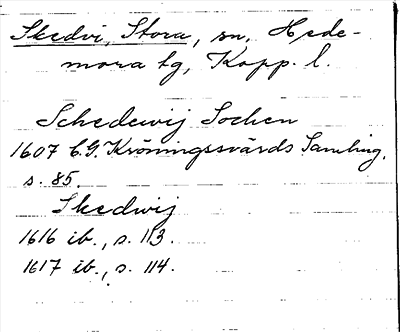 Skedvi, Stora, sn, Hede-
mora tg, Kopp. l.
Schedewij Sochen
1607 C.G. Kröningssvärds Samling,
s. 85.
Skedwij
1616 ib., s. 113.
1617 ib., s. 114.